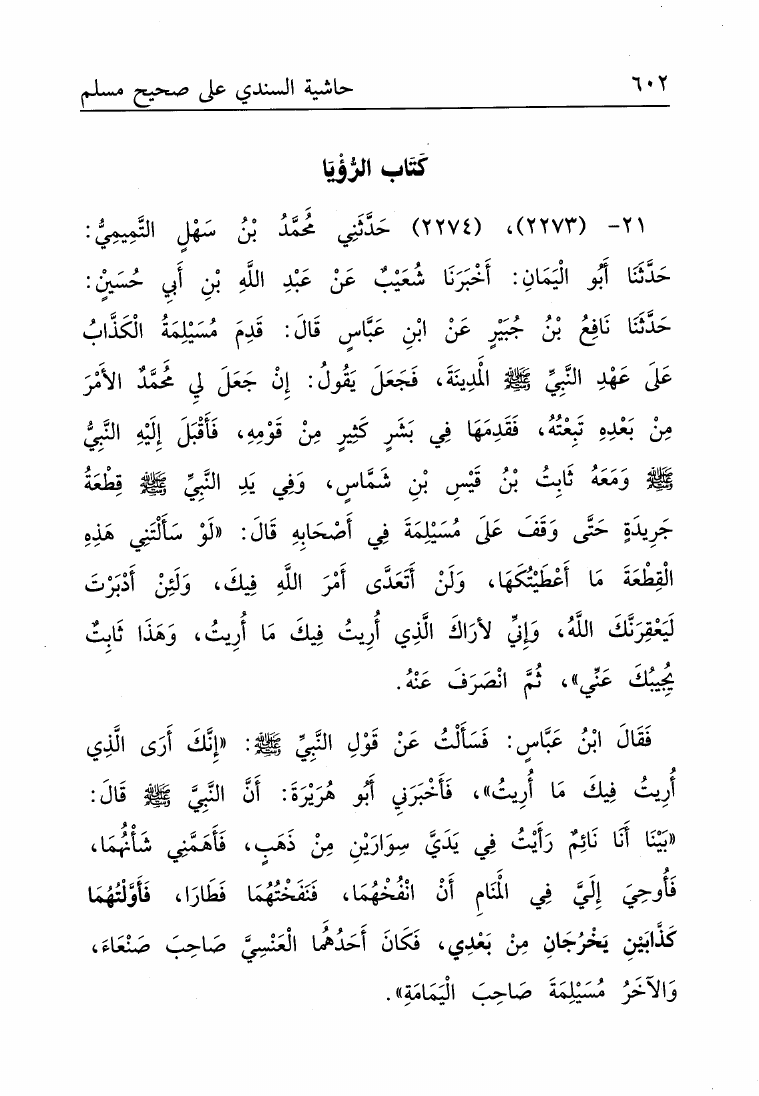 ٦٠٢ حاشية السندي على صحيح مسلم
كِتَاب الرُّؤْيَا
٢١- (٢٢٧٣)، (٢٢٧٤) حَدَّثَنِي مُحَمَّدُ بْنُ سَهْلٍ التَّمِيمِيُّ:
حَدَّثَنَا أَبُو الْيَمَانِ: أَخْبَرَنَا شُعَيْبٌ عَنْ عَبْدِ اللَّهِ بْنِ أَبِي حُسَيْنٍ:
حَدَّثَنَا نَافِعُ بْنُ جُبَيْرٍ عَنْ ابْنِ عَبَّاسٍ قَالَ: قَدِمَ مُسَيْلِمَةُ الْكَذَّابُ
عَلَى عَهْدِ النَّبِيِّ ﷺ الْمَدِينَةَ، فَجَعَلَ يَقُولُ: إِنْ جَعَلَ لِي مُحَمَّدٌ الأَمْرَ
مِنْ بَعْدِهِ تَبِعْتُهُ، فَقَدِمَهَا فِي بَشَرٍ كَثِيرٍ مِنْ قَوْمِهِ، فَأَقْبَلَ إِلَيْهِ النَّبِيُّ
ﷺ وَمَعَهُ ثَابِتُ بْنُ قَيْسِ بْنِ شَمَّاسٍ، وَفِي يَدِ النَّبِيِّ ﷺ قِطْعَةُ
جَرِيدَةٍ حَتَّى وَقَفَ عَلَى مُسَيْلِمَةَ فِي أَصْحَابِهِ قَالَ: «لَوْ سَأَلْتَنِي هَذِهِ
الْقِطْعَةَ مَا أَعْطَيْتُكَهَا، وَلَنْ أَتَعَدَّى أَمْرَ اللَّهِ فِيكَ، وَلَئِنْ أَدْبَرْتَ
لَيَعْقِرَنَّكَ اللَّهُ، وَإِنِّي لأَرَاكَ الَّذِي أُرِيتُ فِيكَ مَا أُرِيتُ، وَهَذَا ثَابِتٌ
يُجِيبُكَ عَنِّي»، ثُمَّ انْصَرَفَ عَنْهُ.
فَقَالَ ابْنُ عَبَّاسٍ: فَسَأَلْتُ عَنْ قَوْلِ النَّبِيِّ ﷺ: «إِنَّكَ أَرَى الَّذِي
أُرِيتُ فِيكَ مَا أُرِيتُ»، فَأَخْبَرَنِي أَبُو هُرَيْرَةَ: أَنَّ النَّبِيَّ ﷺ قَالَ:
«بَيْنَا أَنَا نَائِمٌ رَأَيْتُ فِي يَدَيَّ سِوَارَيْنِ مِنْ ذَهَبٍ، فَأَهَمَّنِي شَأْنُهُمَا،
فَأُوحِيَ إِلَيَّ فِي الْمَنَامِ أَنْ انْفُخْهُمَا، فَنَفَخْتُهُمَا فَطَارَا، فَأَوَّلْتُهُمَا
كَذَّابَيْنِ يَخْرُجَانِ مِنْ بَعْدِي، فَكَانَ أَحَدُهُمَا الْعَنْسِيَّ صَاحِبَ صَنْعَاءَ،
وَالآخَرُ مُسَيْلِمَةَ صَاحِبَ الْيَمَامَةِ».